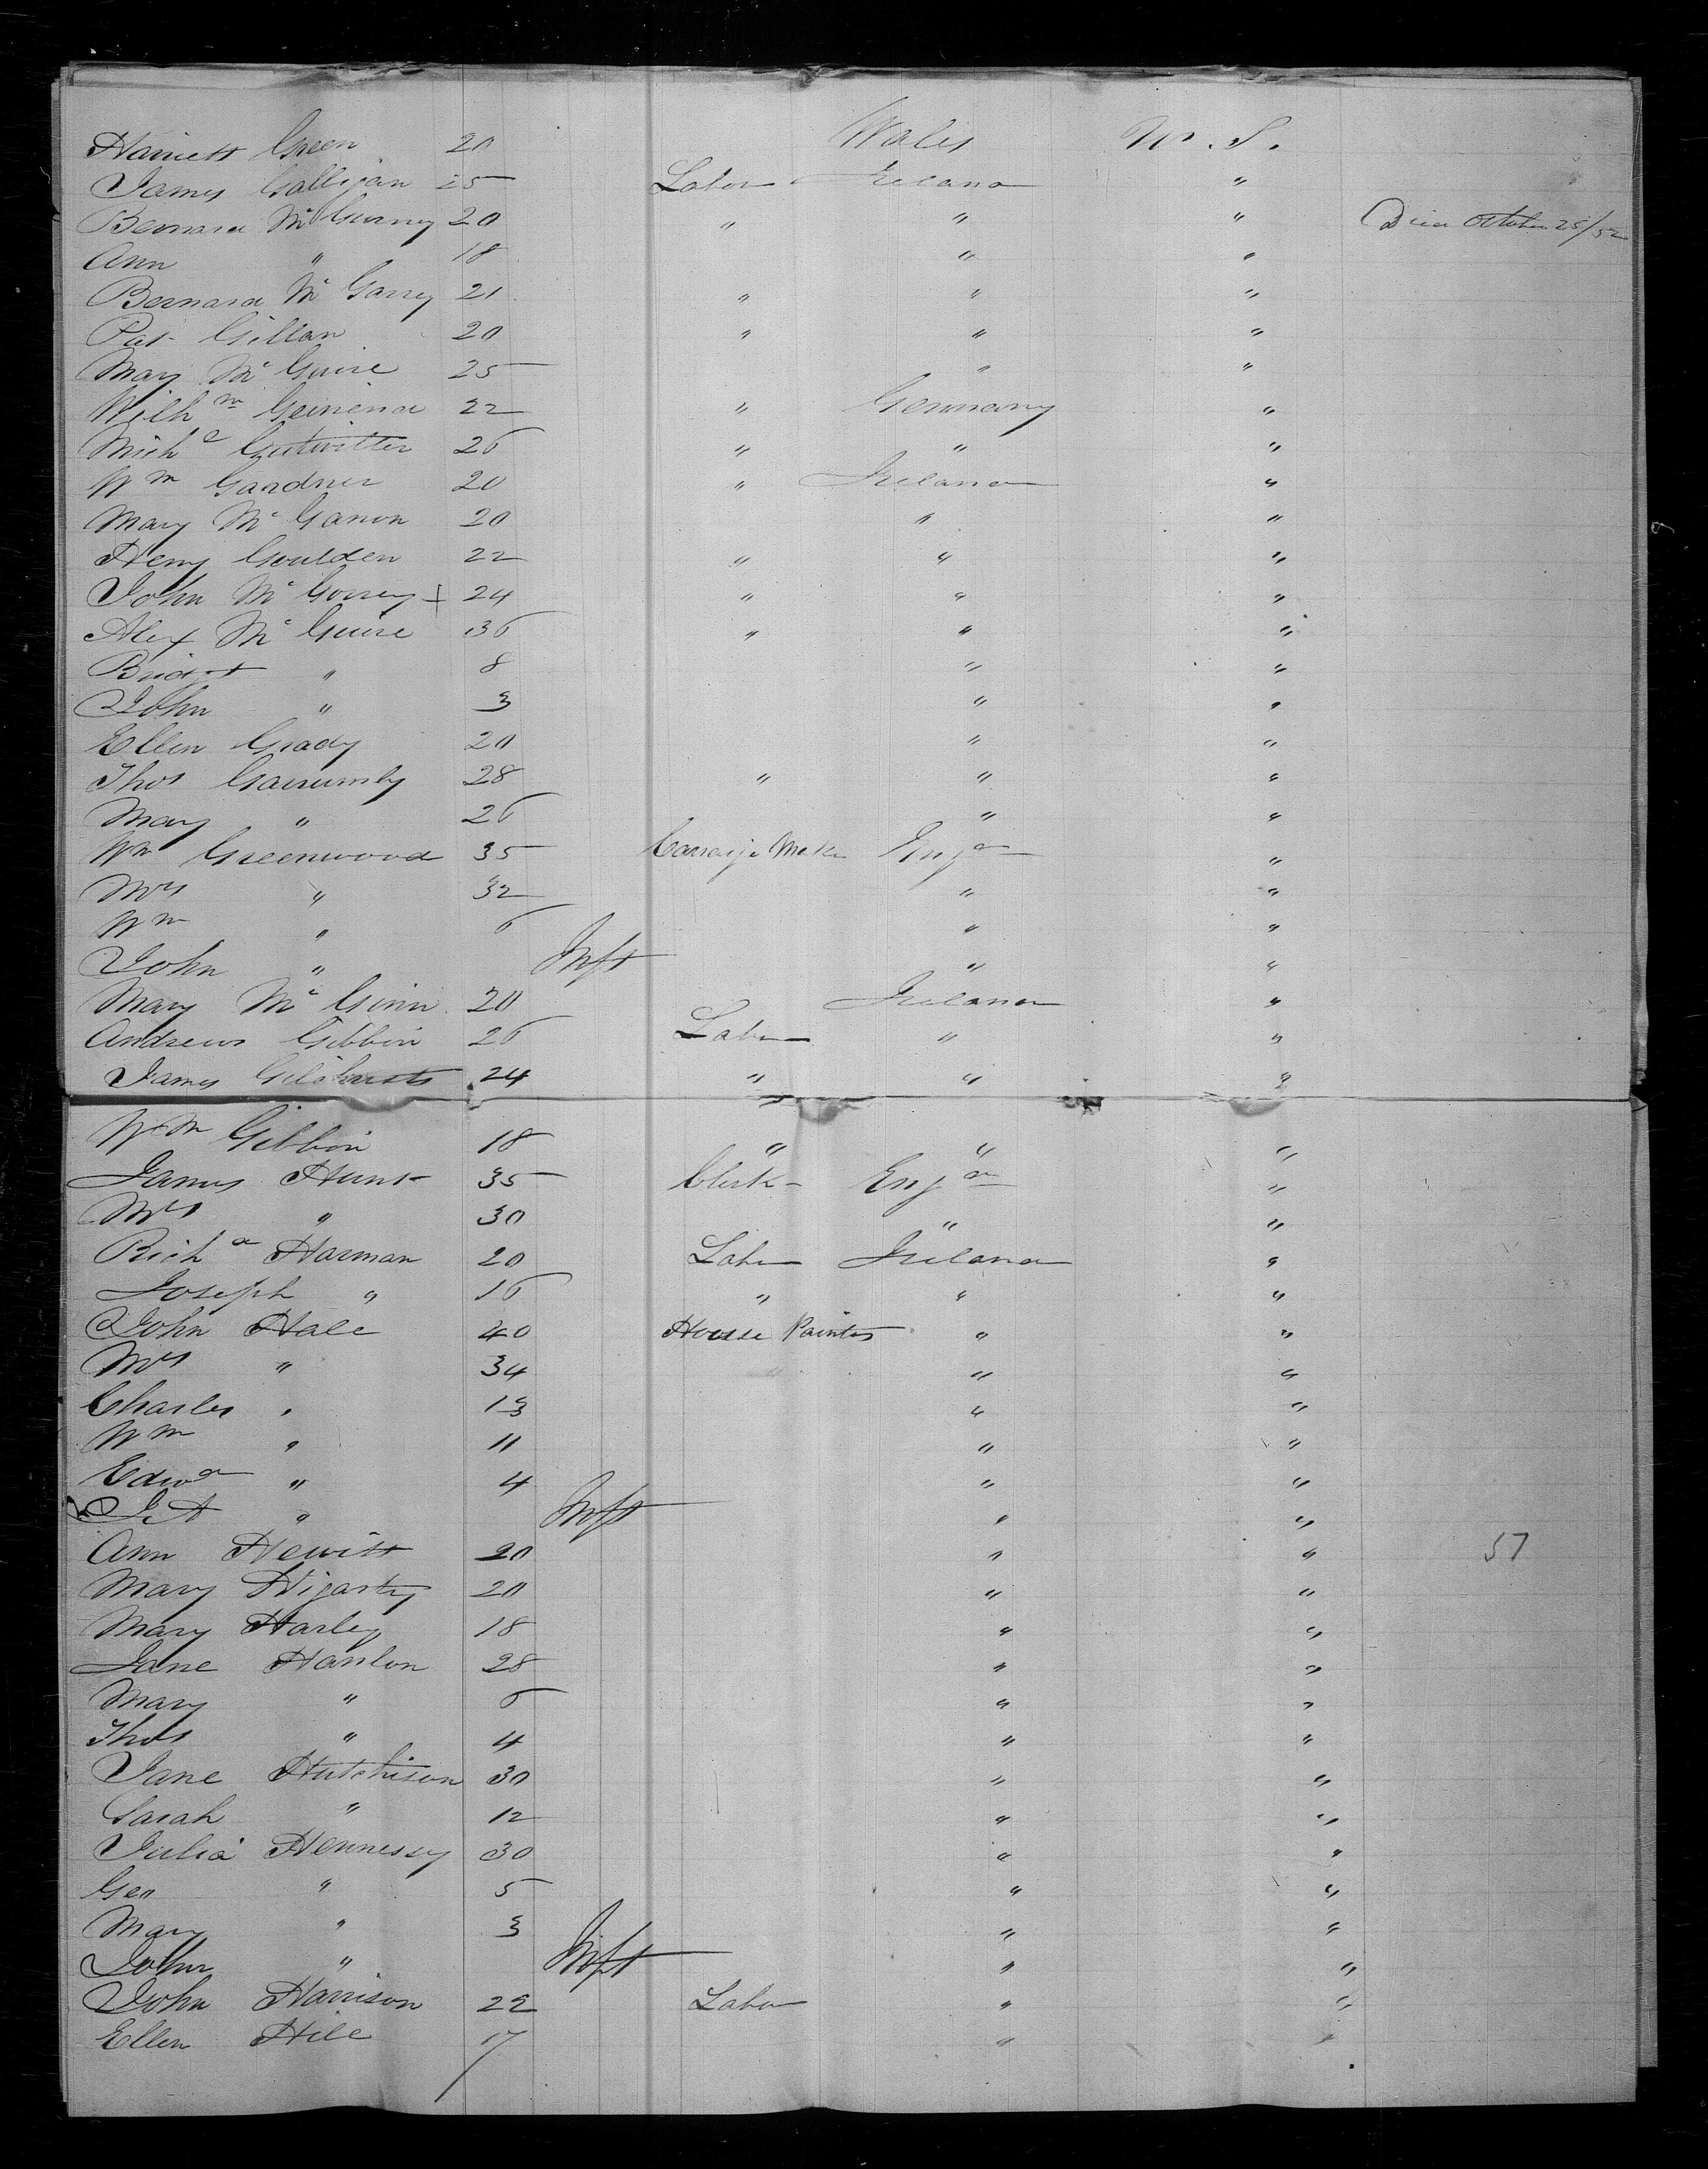 Harriett Green 20 Wales U. S.
James Galligan 25 Labor Ireland "
Bernard Mc Gurney 20 " " " Died October 25/52
Ann " 18 " "
Bernard Mc Garry 21 " " "
Pat Gillan 20 " " "
Mary Mc Guire 25 " "
Wilhm 22 " Germany "
Michl Gutwitter 26 " " "
Wm Gardner 20 " Ireland "
Mary Mc Ganon 20 " "
Heny Goulden 22 " " "
John Mc Gorrey + 24 " " "
Alex Mc Guire 36 " " "
Bridgt " 8 " "
John " 3 " "
Ellen Grady 20 " "
Thos 28 " " "
Mary " 26 " "
Wm Greenwood 35 Carraige Maker Engd "
Mrs " 32 " "
Wm " 6 " "
John " Inft " "
Mary Mc Ginn 20 Ireland "
Andrew Gibbin 26 Labor " "
James Gilchrist 24 " " "
Wm Gibbin 18 " " "
James Hunt 35 Clerk Engd "
Mrs " 30 " "
Richd Harman 20 Labor Ireland "
Joseph " 16 " " "
John Hale 40 House Painter " "
Mrs " 34 " "
Charles " 13 " "
Wm " 11 " "
Edwd " 4 " "
J. A " Inft " "
Ann Hewitt 20 " " 57
Mary Higarty 20 " "
Mary Harley 18 " "
Jane Hanlon 28 " "
Mary " 6 " "
Thos " 4 " "
Jane Hutchison 30 " "
Sarah " 12 " "
Julia Hennessy 30 " "
Geo " 5 " "
Mary " 3 " "
John " Inft " "
John Harrison 22 Labor " "
Ellen Hill 17 " "